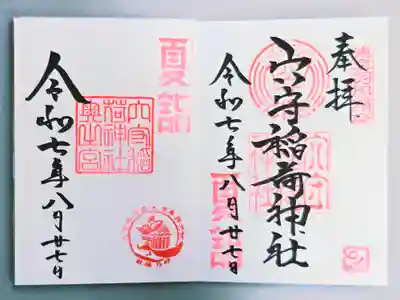 奉拝
穴守稲荷神社
令和七年八月廿七日
夏詣
夏詣
穴守稲
荷神社
奥之宮
令和七年八月廿七日